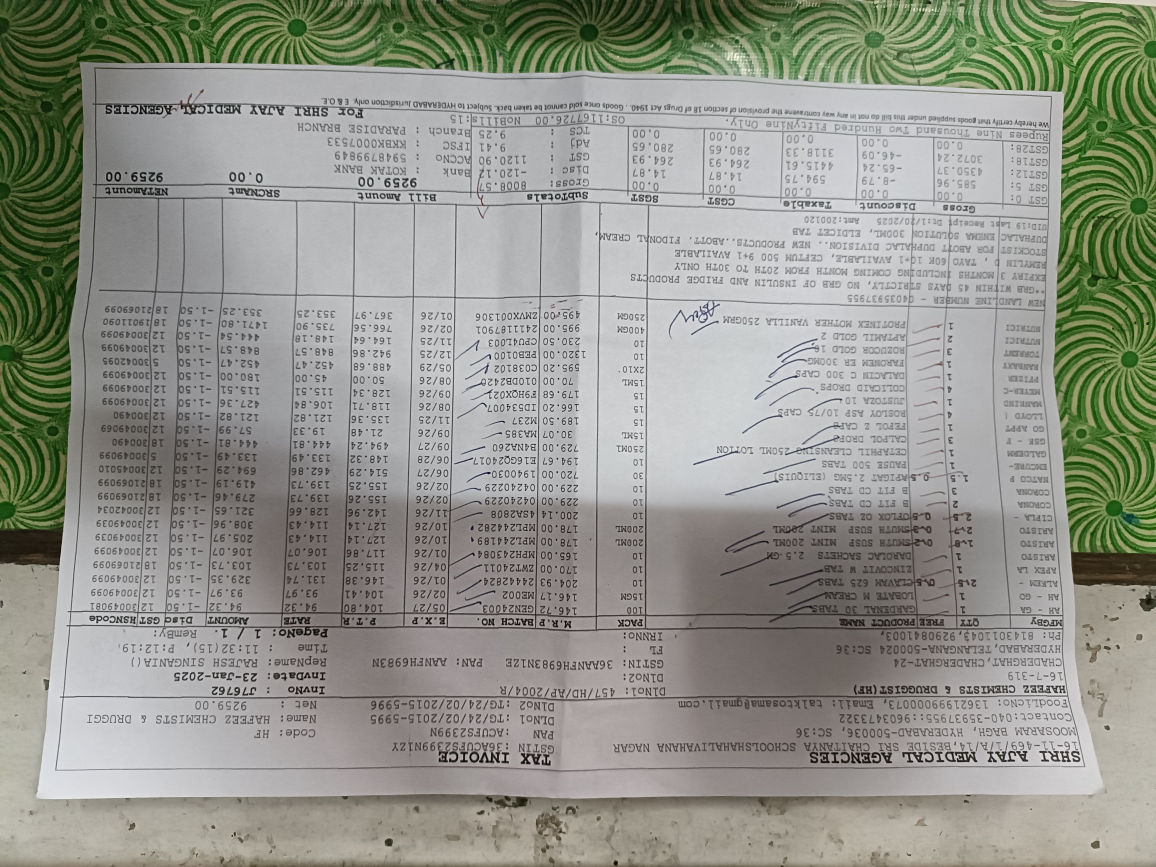 SHRI AJAY MEDICAL AGENCIES TAX INVOICE
16-11-469/1/A/14,BESIDE SRI CHAITANYA SCHOOLSHAHALIVAHANA NAGAR GSTIN :36ACUFS2399N1ZY
MOOSARAM BAGH, HYDERABAD-500036, SC:36 PAN : ACUFS2399N Code: HF
Contact:040-35937955::9603473322 DLNo1 :TG/24/02/2015-5995 Name: HAFEEZ CHEMISTS & DRUGGI
FoodLicNo: 13621999000073, Email: talktosama@gmail.com DLNo2 :TG/24/02/2015-5996 Net : 9259.00
HAFEEZ CHEMISTS & DRUGGIST(HF) DLNo1: 457/HD/AP/2004/R InvNo : J76762
16-7-319 DLNo2: InvDate: 23-Jan-2025
CHADERGHAT, CHADERGHAT-24 GSTIN: 36AANFH6983N1ZE PAN: AANFH6983N RepName: RAJESH SINGANIA()
HYDERABAD, TELANGANA-500024 SC:36 FL : Time : 11:32(15), P:12:19.
Ph: 8143011043,9290841003, IRNO: PageNo: 1 / 1. RemBy:
MFGBY QTY FREE PRODUCT NAME PACK M.R.P BATCH NO. E.X.P P.T.R RATE AMOUNT Disc GST HSNCode
AH - GA 1 GARDENAL 30 TABS 100 146.72 GEN24003 05/27 104.80 94.32 94.32 -1.50 12 30049081
AH - GO 1 LOBATE M CREAM 15GM 146.17 ME002 02/26 104.41 93.97 93.97 -1.50 12 30049099
ALKEM - 2.5 0.5 CLAVAM 625 TABS 10 204.93 24442824 01/26 146.38 131.74 329.35 -1.50 12 30049099
APEX LA 1 ZINCOVIT W TAB 10 170.00 ZWT24011 04/26 115.25 103.73 103.73 -1.50 18 21069099
ARISTO 1 DAROLAC SACHETS 2.5 GM 10 165.00 MPH243084 01/26 117.86 106.07 106.07 -1.50 12 30049099
ARISTO 1.8 0.2 SMUTH SUSP MINT 200ML 200ML 178.00 MPL244189 10/26 127.14 114.43 205.97 -1.50 12 30049039
ARISTO 2.7 0.3 SMUTH SUSP MINT 200ML 200ML 178.00 MPL244282 10/26 127.14 114.43 308.96 -1.50 12 30049039
CIPLA - 2.5 0.5 CFLOX OZ TABS 10 200.14 ASA2808 11/26 142.96 128.66 321.65 -1.50 12 30042034
CORONA 2 B FIT CD TABS 10 229.00 042240229 02/26 155.26 139.73 279.46 -1.50 18 21069099
CORONA 3 B FIT CD TABS 10 229.00 042240229 02/26 155.25 139.73 419.19 -1.50 18 21069099
NATCO P 1.5 0.5 APIGAT 2.5MG (ELIQUIS) 30 720.00 1940030 06/27 514.29 462.86 694.29 -1.50 12 30045010
EMCURE- 1 PAUSE 500 TABS 10 194.67 E16GG24017 06/28 148.32 133.49 133.49 -1.50 5 30049099
GALDERM 1 CETAPHIL CLEANSING 250ML LOTION 250ML 729.00 B4NA260 09/27 494.24 444.81 444.81 -1.50 18 300490
GSK - F 3 CALPOL DROPS 15ML 30.07 MA585 09/26 21.48 19.33 57.99 -1.50 12 30049069
GO APPT 1 FEFOL Z CAPS 15 189.50 M237 11/25 135.36 121.82 121.82 -1.50 12 300490
LLOYD I 4 ROSLOY ASP 10/75 CAPS 10 166.20 IDS34007 08/26 118.71 106.84 427.36 -1.50 12 30049099
MANKIND 1 JUSTOZA 10 15 179.68 F9HQX021 09/26 128.34 115.51 115.51 -1.50 12 30049099
MEYER-C 4 COLICAID DROPS 15ML 70.00 01ODB2420 08/26 50.00 45.00 180.00 -1.50 12 30049099
PFIZER 1 DALACIN C 300 CAPS 2X10 595.20 C038102 05/29 488.68 452.47 452.47 -1.50 5 30042095
RANBAXY 1 FARONEM ER 300MG 10 1320.00 PEB0100 12/25 942.86 848.57 848.57 -1.50 12 30049099
TORRENT 3 ROZUCOR GOLD 10 10 230.50 CPU4L003 11/25 164.64 148.18 444.54 -1.50 12 30049099
NUTRICI 2 APTAMIL GOLD 2 400GM 995.00 2411187901 02/26 766.56 735.90 1471.80 -1.50 18 19011090
NUTRICI 1 PROTINEX MOTHER VANILLA 250GRM 250GM 495.00 ZMVX001306 01/26 367.97 353.25 353.25 -1.50 18 21069099
NEW LANDLINE NUMBER - 04035937955
**GRB WITHIN 45 DAYS STRICTLY, NO GRB OF INSULIN AND FRIDGE PRODUCTS
EXPIRY 3 MONTHS INCLUDING COMING MONTH FROM 20TH TO 30TH ONLY
REMYLIN D , TAYO 60K 10+1 AVAILABLE, CEFTUM 500 9+1 AVAILABLE
STOCKIST FOR ABOTT DUPHALAC DIVISION.. NEW PRODUCTS..ABOTT. FIDONAL CREAM,
DUPHALAC ENEMA SOLUTION 300ML, ELDICET TAB
UID:19 Last Receipt Dt:1/20/2025 Amt:200120
Gross Discount Taxable CGST SGST SubTotals Bill Amount SRCNAmt NETAmount
GST 0: 0.00 0.00 0.00 0.00 0.00 Gross: 8008.57 9259.00 0.00 9259.00
GST 5: 585.96 -8.79 594.75 14.87 14.87 Disc : -120.12 Bank : KOTAK BANK
GST12: 4350.37 -65.24 4415.61 264.93 264.93 GST : 1120.90 ACCNO : 5948799849
GST18: 3072.24 -46.09 3118.33 280.65 280.65 Adj : 9.41 IFSC : KKBK0007533
GST28: 0.00 0.00 0.00 0.00 0.00 TCS : 9.25 Branch : PARADISE BRANCH
Rupees Nine Thousand Two Hundred FiftyNine Only. OS:1167726.00 NoBills:15
We hereby certify that goods supplied under this bill do not in any way contravene the provision of section 18 of Drugs Act 1940. . Goods once sold cannot be taken back. Subject to HYDERABAD Jurisdiction only. E & O.E
For SHRI AJAY MEDICAL AGENCIES